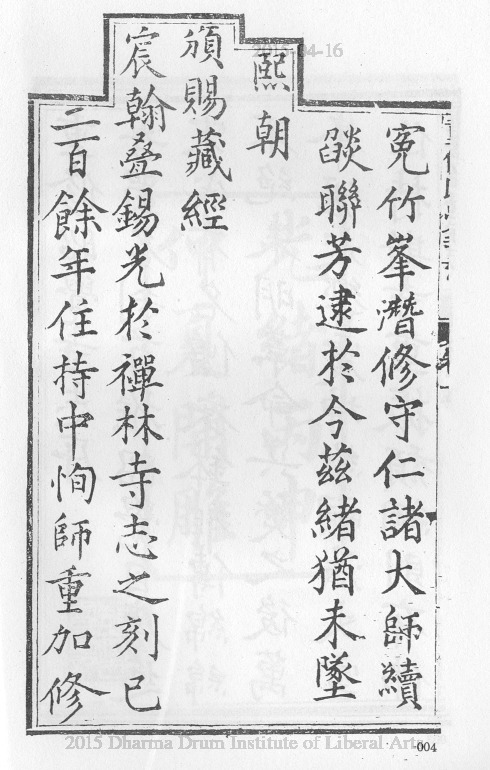 寃竹峯潛修守仁諸大師續
燄聯芳逮於今茲緒猶未墜
熙朝
頒賜藏經
宸翰疊錫光於禪林寺志之刻已
二百餘年住持中恂師重加修
2015-04-16
2015 Dharma Drum Institute of Liberal Arts
004